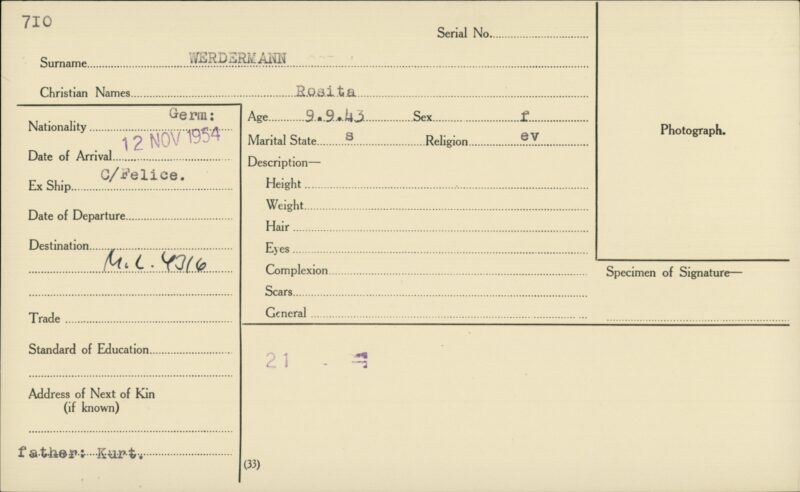 710
Serial No.
Surname WERDERMANN
Christian Names Rosita
Nationality Germ:
Date of Arrival 12 NOV 1954
Ex Ship C/Felice.
Date of Departure
Destination
M.L. 4316
Trade
Standard of Education
Address of Next of Kin
(if known)
father: Kurt.
Age 9.9.43 Sex f
Marital State s Religion ev
Description—
Height
Weight
Hair
Eyes
Complexion
Scars
General
21
(33)
Photograph.
Specimen of Signature—